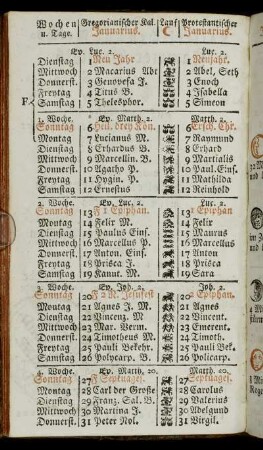 Wochen Gregorianischer Kal. Lauf Protestantischer
u. Tage. Januarius. ☾ Januarius.
Ev. Luc. 2. Luc. 2.
Dienstag 1 Neu Jahr 1 Neujahr.
Mittwoch 2 Macarius Abt 2 Abel, Seth
Donnerst. 3 Genovefa J. 3 Enoch
Freytag 4 Titus B. 4 Isabella
F. Samstag 5 Thelesphor. 5 Simeon
1. Woche. Ev. Matth. 2. Matth. 2.
Sonntag 6 Heil. drey Kön. 6 Ersch. Chr.
Montag 7 Lucianus M. 7 Raymund
Dienstag 8 Erhardus B. 8 Erhard
Mittwoch 9 Marcellin. B. 9 Martialis
Donnerst. 10 Agatho P. 10 Paul. Eins.
Freytag 11 Hygin. P. 11 Mathilda
Samstag 12 Ernestus 12 Reinhold
2. Woche. Ev. Luc. 2. Luc. 2.
Sonntag 13 F 1 Epiphan. 13 1 Epiphan
Montag 14 Felix M. 14 Felix
Dienstag 15 Paulus Eins. 15 Maurus
Mittwoch 16 Marcellus P. 16 Marcellus
Donnerst. 17 Anton. Eins. 17 Anton
Freytag 18 Prisca J. 18 Prisca
Samstag 19 Kanut. M. 19 Sara
3. Woche. Ev. Joh. 2. Joh. 2.
Sonntag 20 F 2 N. Jesusfest 20 2 Epiphan.
Montag 21 Agnes J. M. 21 Agnes
Dienstag 22 Vincenz. M. 22 Vincent
Mittwoch 23 Mar. Verm. 23 Emerent.
Donnerst. 24 Timotheus M. 24 Timoth.
Freytag 25 Pauli Bekehr. 25 Pauli Bek.
Samstag 26 Polycarp. B. 26 Policarp.
4. Woche. Ev. Matth. 20. Matth. 20.
Sonntag 27 F Septuages. 27 Septuages.
Montag 28 Carl der Große 28 Carolus
Dienstag 29 Franz. Sal. B. 29 Valerius
Mittwoch 30 Martina J. 30 Adelgund
Donnerst. 31 Peter Nol. 31 Virgil.